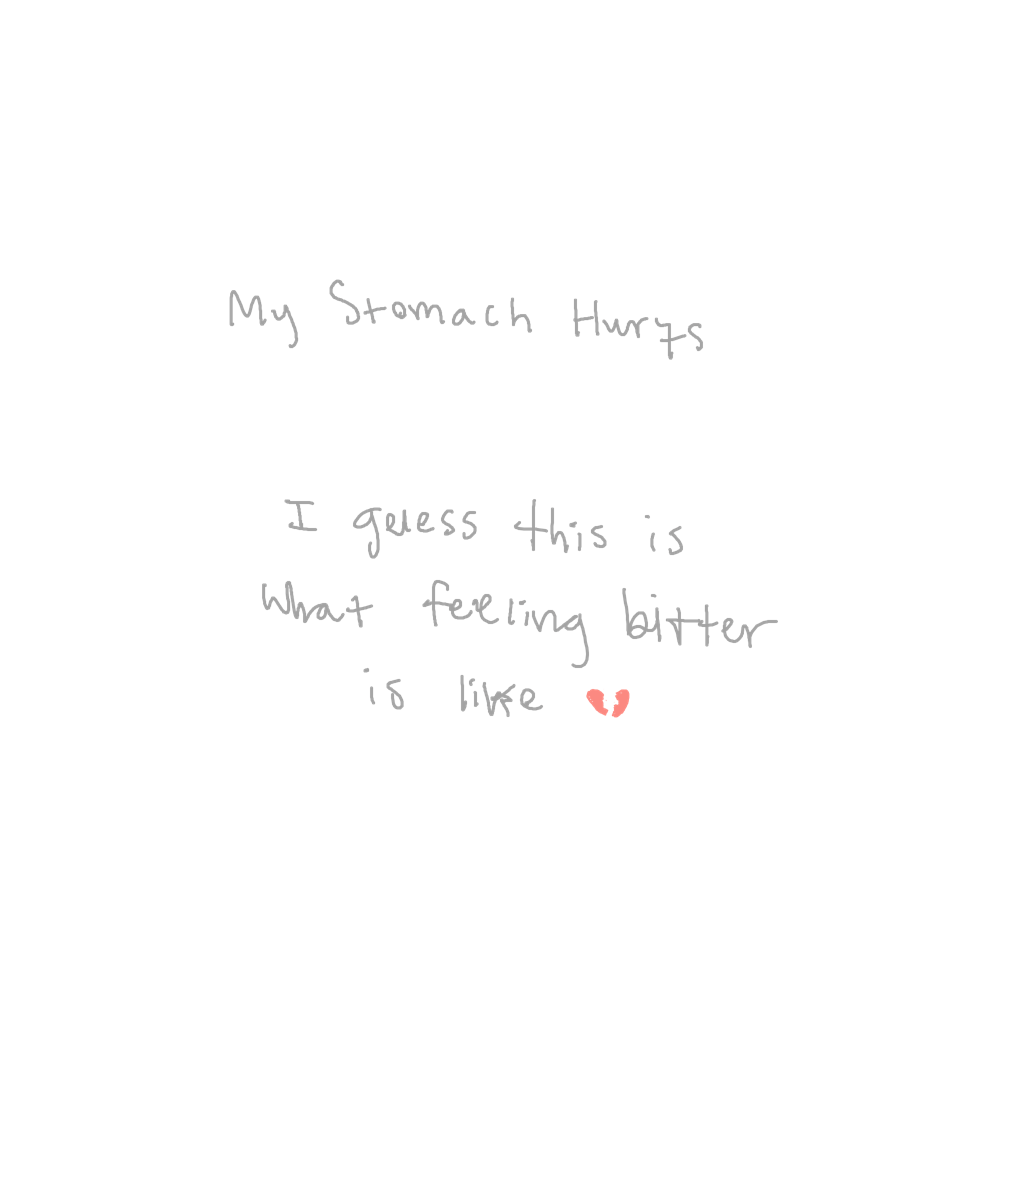 My Stomach Hurts
I guess this is
what feeling bitter
is like 💔